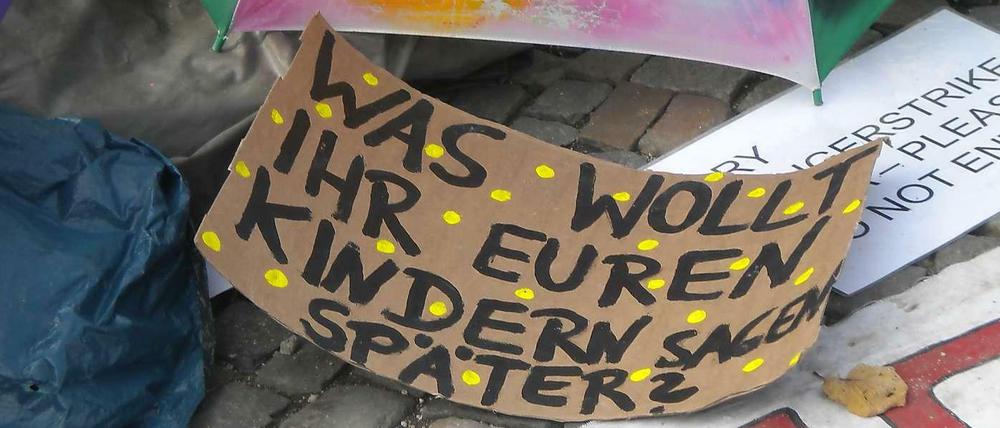 WAS WOLLT
IHR EUREN
KINDERN SAGEN
SPÄTER?
RY
NGERSTRIKE
– PLEAS
NOT EN